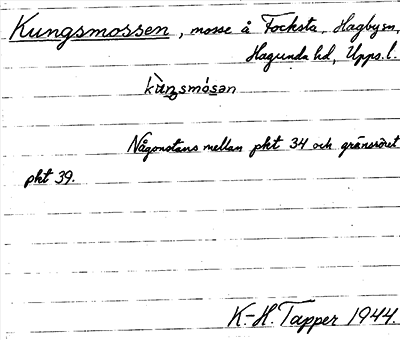 Kungsmossen, mosse å Focksta, Hagby sn,
Hagunda hd, Upps. l.
kùŋsmósən
Någonstans mellan pkt 34 och gränsröset
pkt 39.
K.-H. Tapper 1944.